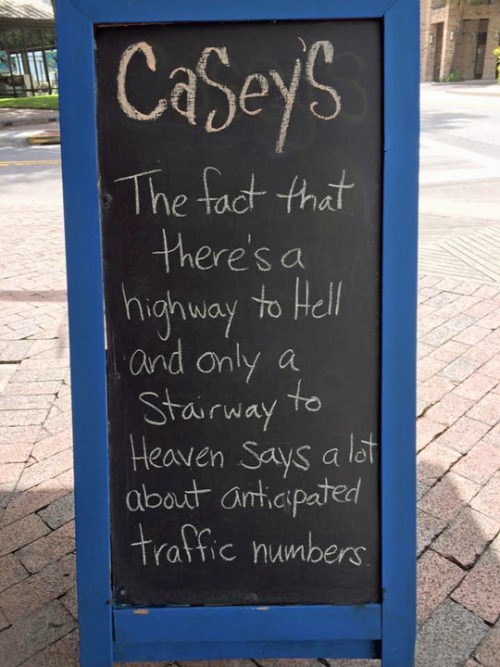 CaSey'S
The fact that
there's a
highway to Hell
and only a
Stairway to
Heaven says a lot
about anticipated
traffic numbers.